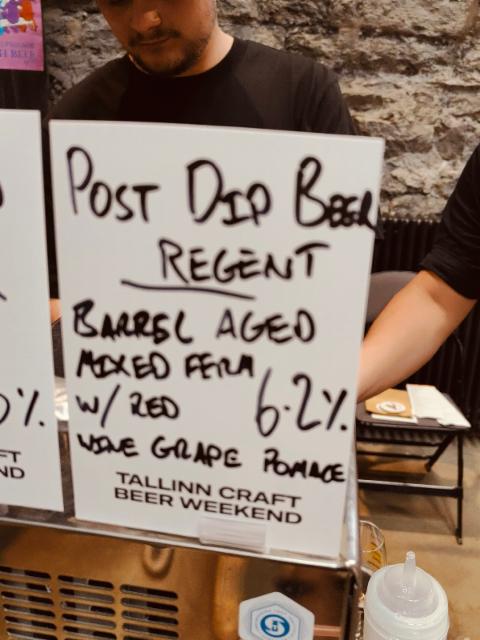 POST DIP BEER
REGENT
BARREL AGED
MIXED FERM
W/ RED
6.2%
WINE GRAPE POMACE
TALLINN CRAFT
BEER WEEKEND
0%
FT
ND